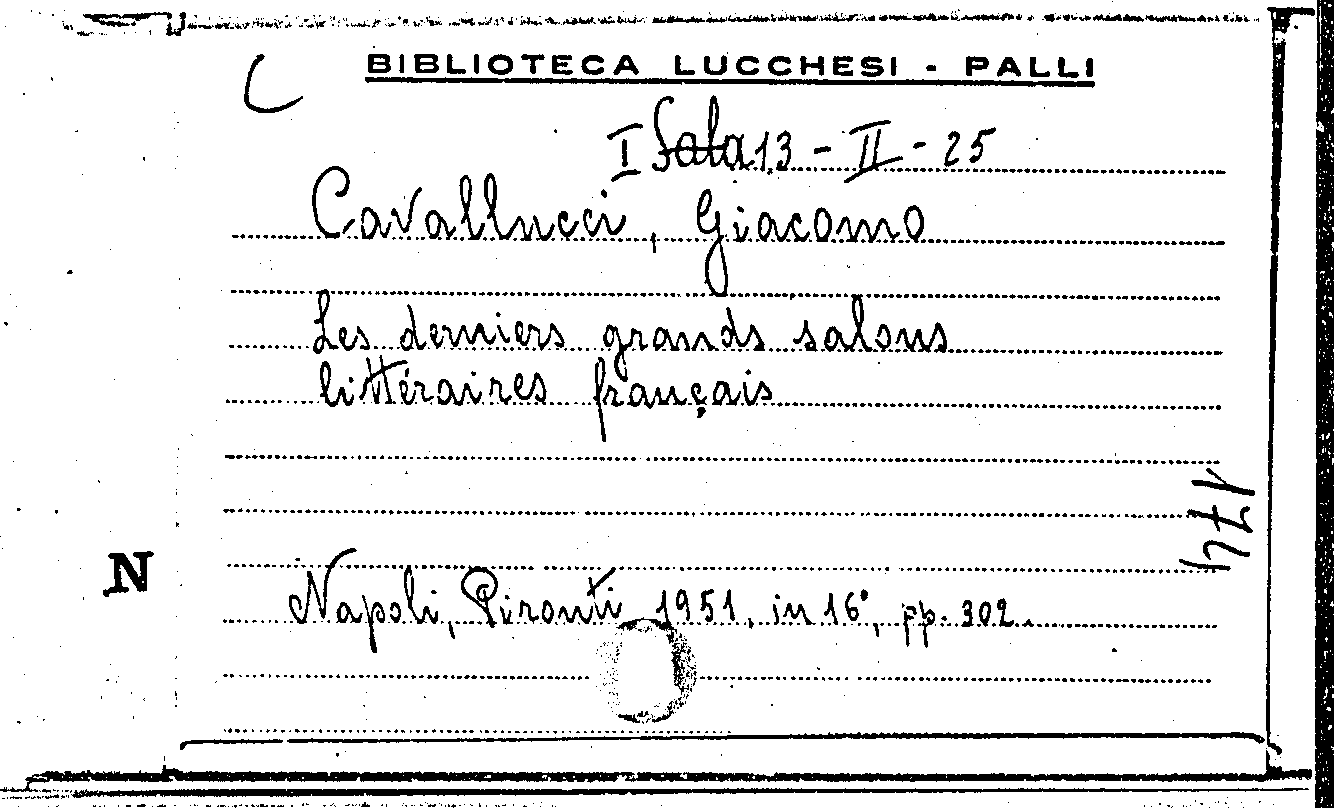 C
BIBLIOTECA LUCCHESI - PALLI
I Sala 13 - II - 25
Cavallucci, Giacomo
Les derniers grands salons
littéraires français
174
N
Napoli, Pironti, 1951, in 16°, pp. 302.